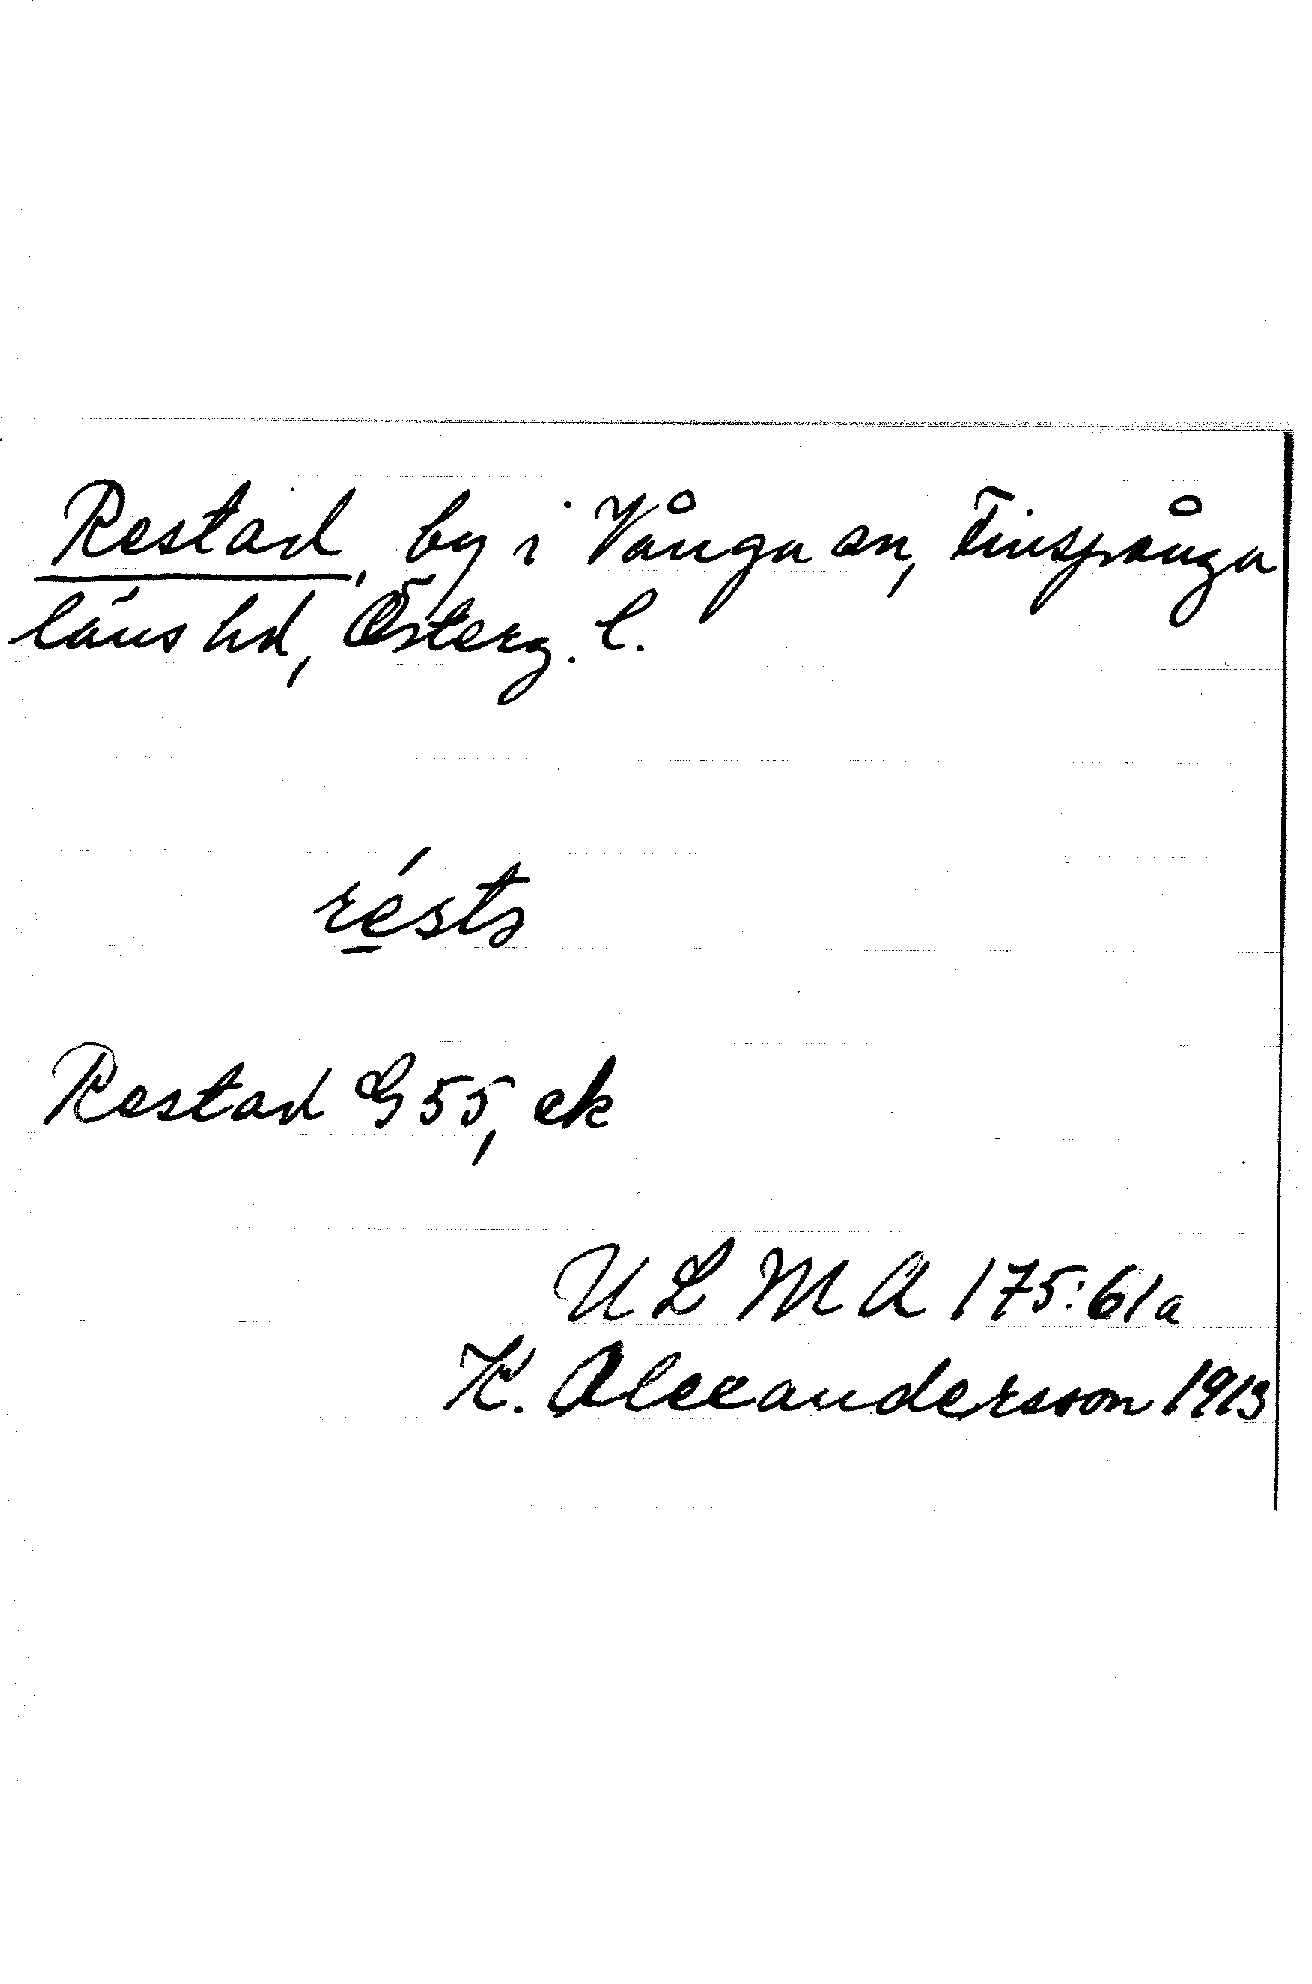 Restad, by i Vånga sn, Finspånga
läns hd, Österg. l.
résta
Restad G 55, ek
ULMA 175:61a
K. Alexandersson 1913